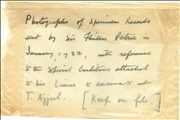 Photographs of Specimen Records
sent by Sir Flinders Petrie in
January, 1932 with reference
to the Special Conditions attached
to his licence to excavate at
T. Ajjul. [Keep on file.]